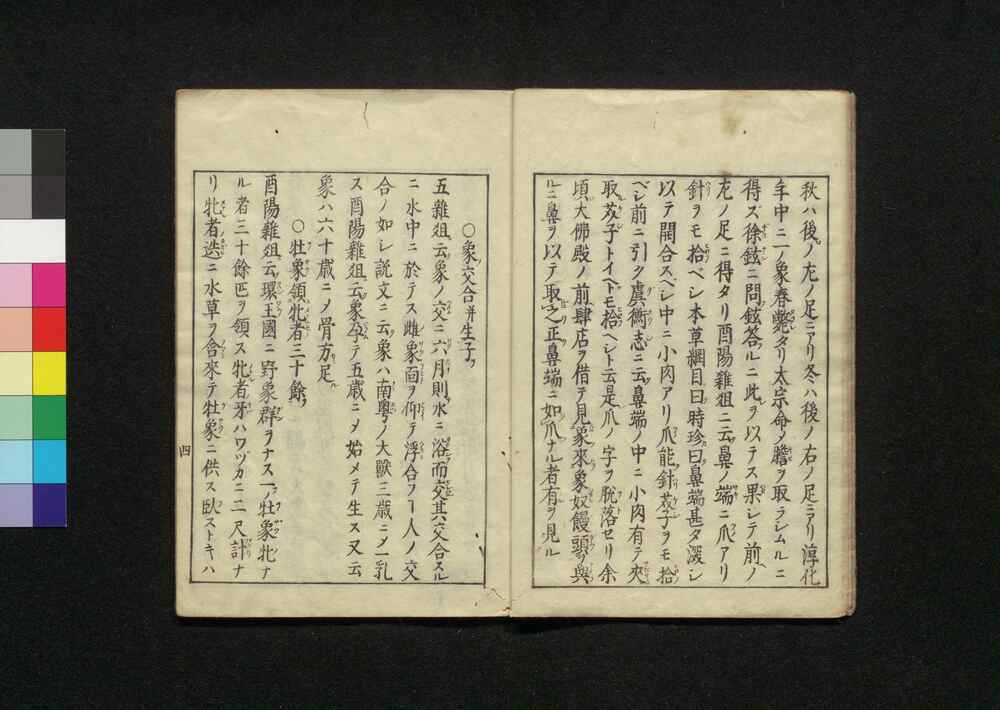 秋ハ後ノ左ノ足ニアリ冬ハ後ノ右ノ足ニアリ淳化
年中ニ一ノ象春斃タリ太宗命メ膽ヲ取ラシムルニ
得ズ徐鉉ニ問鉉答ルニ此ヲ以テス果レテ前ノ
左ノ足ニ得タリ酉陽雜俎ニ云鼻ノ端ニ爪アリ
針ヲモ拾ベシ本草綱目曰時珍曰鼻端甚タ深シ
以テ開合スベシ中ニ小肉アリ爪能針芥子ヲモ拾
ベシ前ニ引ク虞衡志ニ云鼻端ノ中ニ小肉有テ夾
取芥子トイヘドモ拾ベシト云是爪ノ字ヲ脱落セリ余
頃大佛殿ノ前肆店ヲ借テ見象來象奴饅頭ヲ與
ルニ鼻ヲ以テ取之正鼻端ニ如爪ナル者有ヲ見ル
○象交合并生子
五雜俎云象ノ交ニ六月則水ニ浴而交其交合スル
ニ水中ニ於テス雌象面ヲ仰テ浮合フヿ人ノ交
合ノ如シ説文ニ云象ハ南粤ノ大獸三歳ニメ一乳
ス酉陽雜俎云象孕テ五歳ニメ始メテ生ス又云
象ハ六十歳ニメ骨方足
○牡象領牝者三十餘
酉陽雜俎云環王國ニ野象群ヲナス一ノ牡象牝ナ
ル者三十餘匹ヲ領ス牝者牙ハワヅカニ二尺計ナ
リ牝者迭ニ水草ヲ含來テ牡象ニ供ス臥ストキハ
四